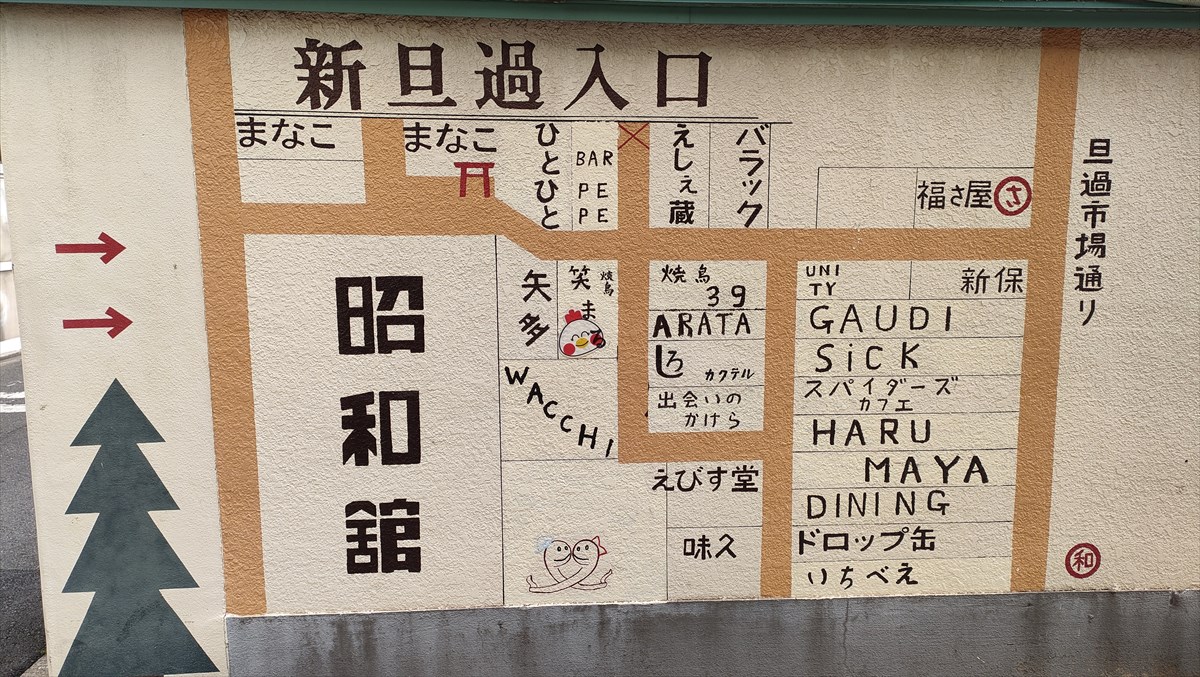 新旦過入口
まなこ
まなこ
ひとひと
BAR
PE
PE
えしぇ蔵
バラック
福さ屋
さ
旦過市場通り
昭和館
矢多
笑まろ
焼鳥
WACCHI
焼鳥
39
ARATA
しろ
カクテル
出会いの
かけら
えびす堂
味久
UNI
TY
新保
GAUDI
SiCK
スパイダーズ
カフェ
HARU
MAYA
DINING
ドロップ缶
いちべえ
和